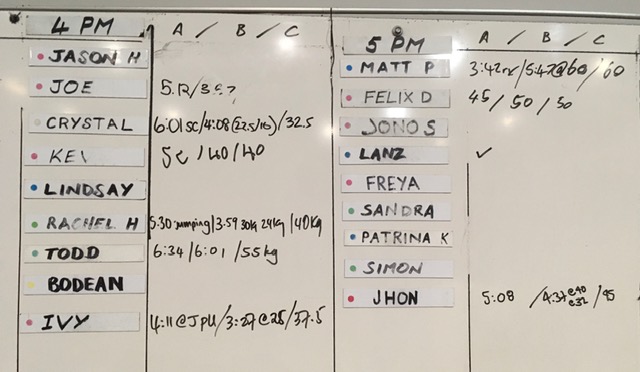 4 PM A / B / C
JASON H
JOE
CRYSTAL 6:01sc/4:08(22.5/16)/32.5
KEV /40/40
LINDSAY
RACHEL H 5:30 jumping/3:59 30kg 24kg/40kg
TODD 6:34/6:01/55kg
BODEAN
IVY 4:11@JPU/3:27@25/37.5
5 PM A / B / C
MATT P 3:42rx/5:47@60/60
FELIX D 45/50/50
JONO S
LANZ ✓
FREYA
SANDRA
PATRINA K
SIMON
JHON 5:08 /4:37@40 @32/95